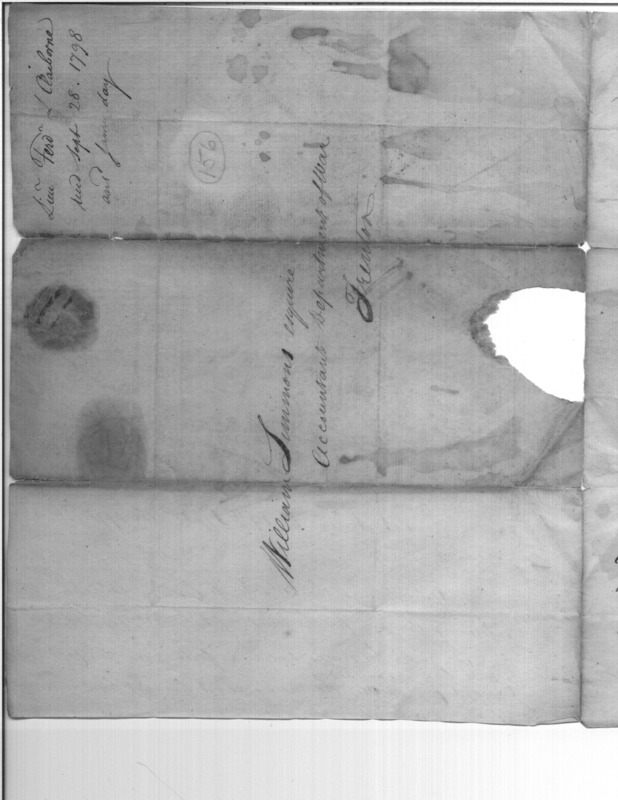 Lieu Ferdn L Claiborne
recd Sept 28. 1798
and same day
156
William Simmons esquire
Accountant Department of War
Trenton